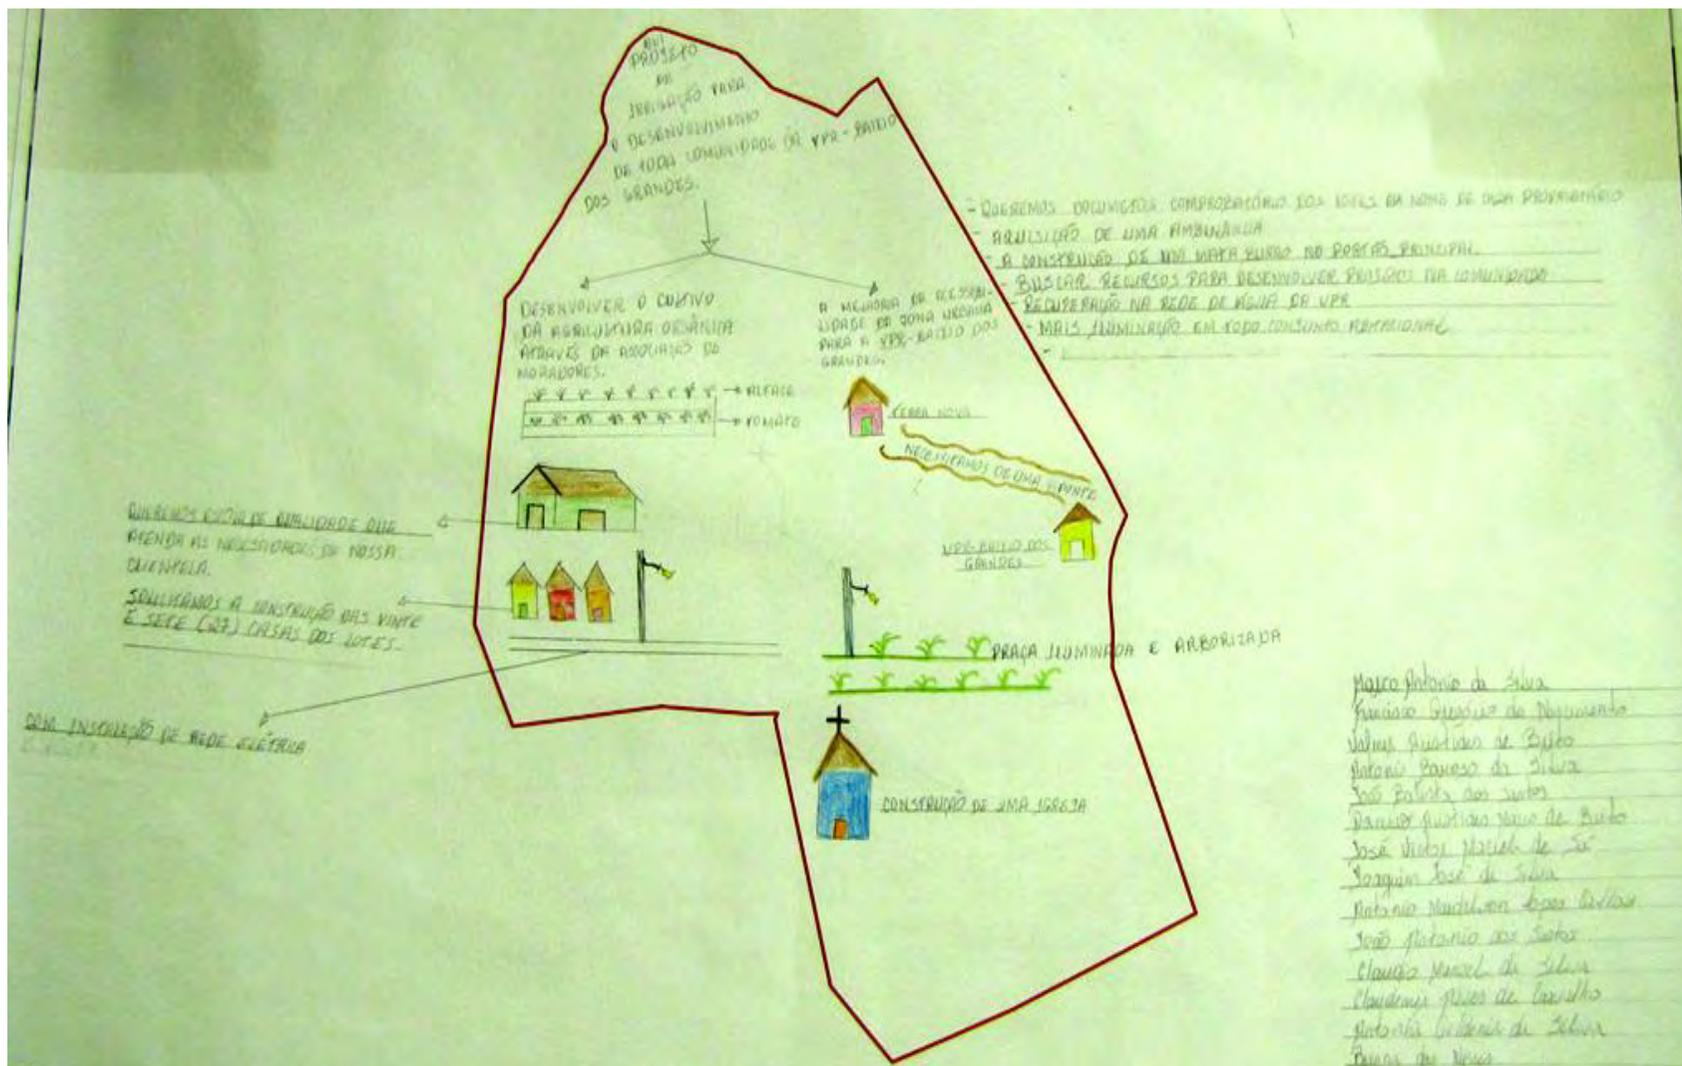 PROJETO
DE
IRRIGAÇÃO PARA
O DESENVOLVIMENTO
DE TODA COMUNIDADE DA VPR - BAIXIO
DOS GRANDES.
DESENVOLVER O CULTIVO
DA AGRICULTURA ORGÂNICA
ATRAVÉS DA ASSOCIAÇÃO DE
MORADORES.
ALFACE
TOMATE
A MELHORIA DE ACESSIBI-
LIDADE DA ZONA URBANA
PARA A VPR- BAIXIO DOS
GRANDES.
TERRA NOVA
NECESSITAMOS DE UMA PONTE
VPR-BAIXIO DOS
GRANDES
- QUEREMOS COMPROBATÓRIO DOS LOTES EM NOME DE CADA PROPRIETÁRIO
- AQUISIÇÃO DE UMA AMBULÂNCIA
- A CONSTRUÇÃO DE UM MATA BURRO NO PORTÃO PRINCIPAL
- BUSCAR RECURSOS PARA DESENVOLVER PROJETOS NA COMUNIDADE
- RECUPERAÇÃO NA REDE DE ÁGUA DA VPR
- MAIS ILUMINAÇÃO EM TODO CONJUNTO HABITACIONAL
-
QUEREMOS DE QUALIDADE QUE
ATENDA AS NECESSIDADES DE NOSSA
CLIENTELA.
SOLICITAMOS A CONSTRUÇÃO DAS VINTE
E SETE (27) CASAS DOS LOTES.
COM INSTALAÇÃO DE REDE ELÉTRICA
PRAÇA ILUMINADA E ARBORIZADA
CONSTRUÇÃO DE UMA IGREJA
Marco Antonio da Silva
Francisco do Nascimento
de Brito
Antonio Barroso da Silva
João Batista dos Santos
de Brito
José Victor Maciel de Sá
Joaquim José da Silva
Antonio Lopes
João Antonio dos Santos
Claudio Manoel da Silva
de Carvalho
da Silva